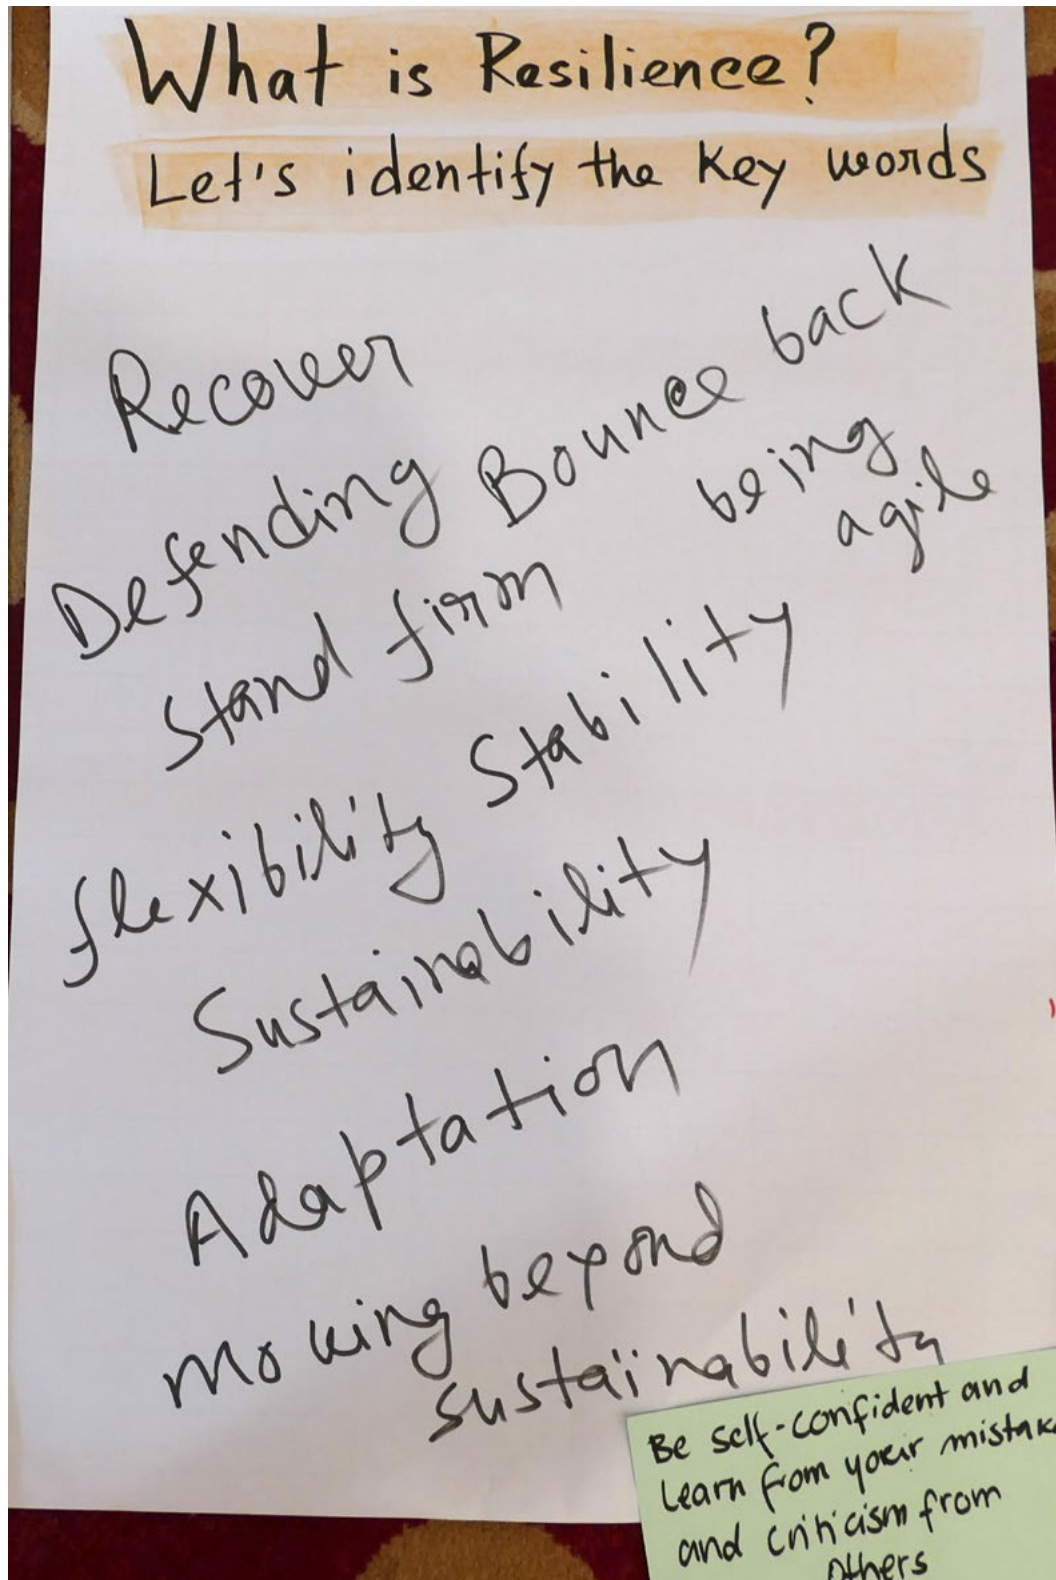 What is Resilience?
Let's identify the key words
Recover
Defending Bounce back
being
agile
Stand firm
flexibility Stability
Sustainability
Adaptation
Moving beyond
sustainability
Be self-confident and
Learn from your mistake
and criticism from
others